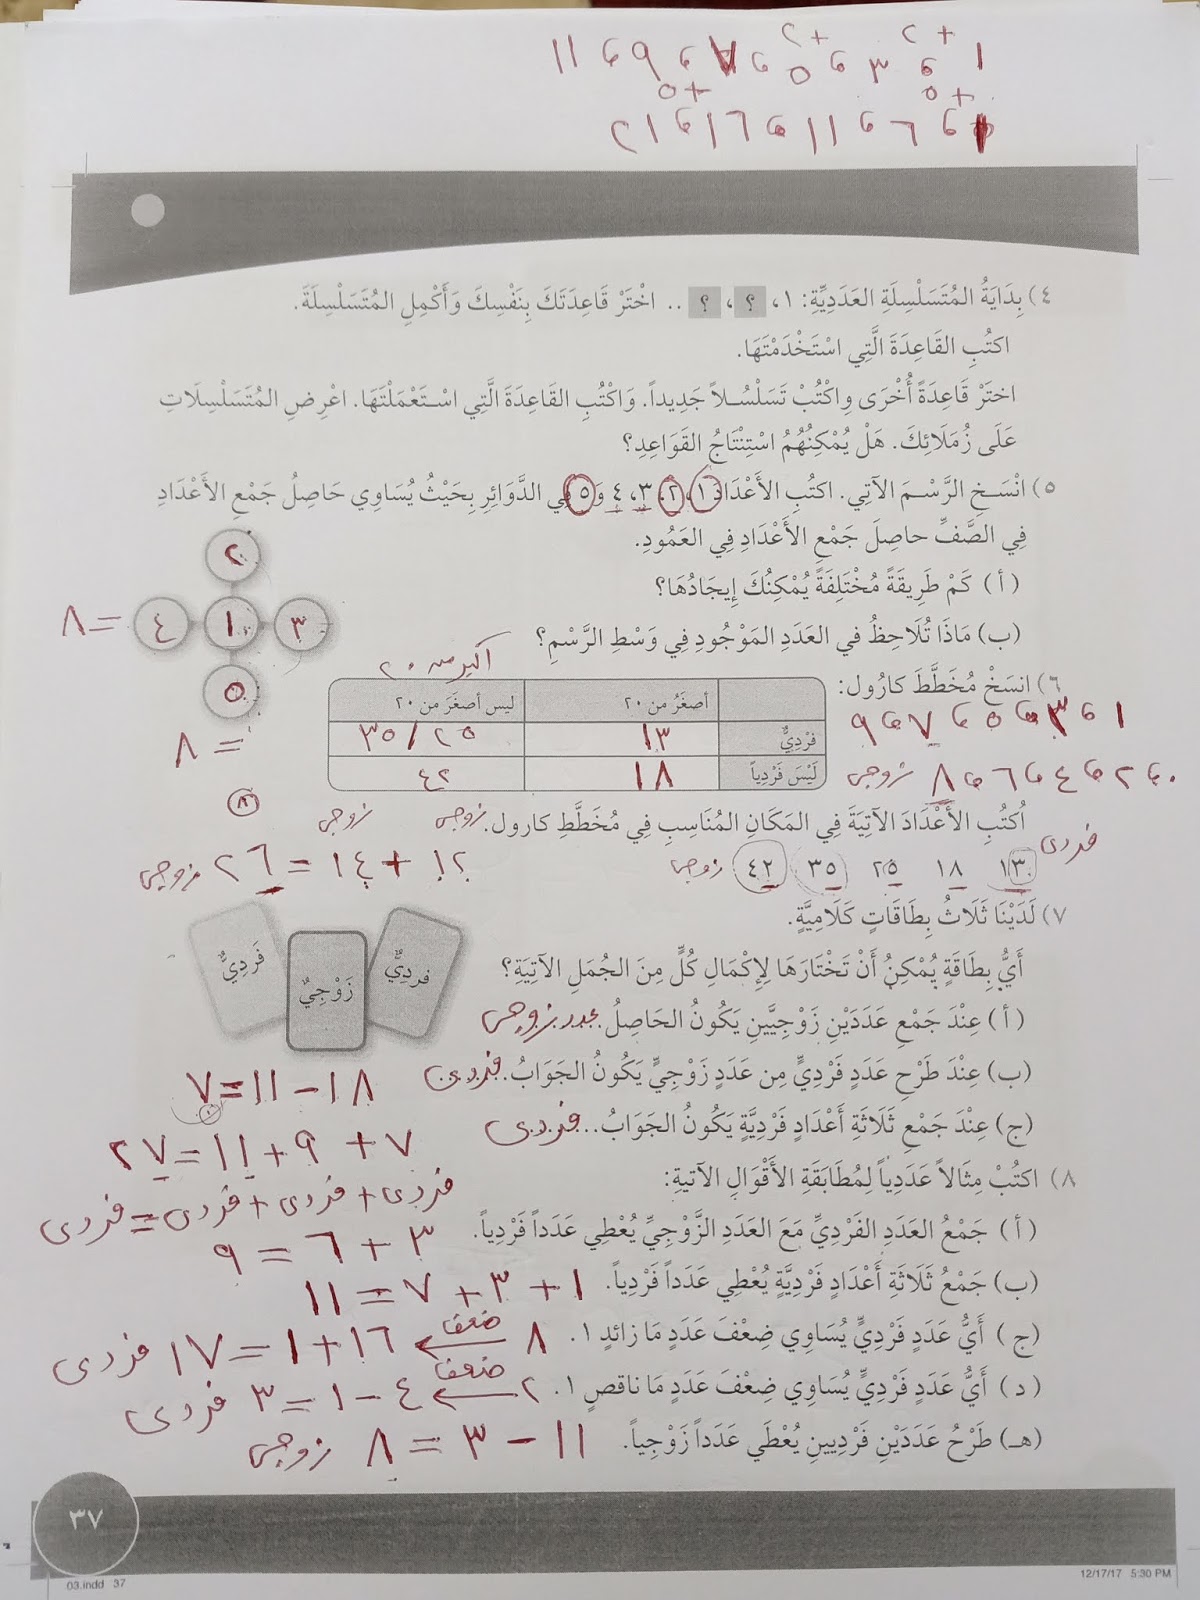 ١ ، ٣ ، ٥ ، ٧ ، ٩ ، ١١
+٢ +٢
+٥ +٥
١ ، ٦ ، ١١ ، ١٦ ، ٢١
٤) بِدَايَةُ المُتَسَلْسِلَةِ العَدَدِيَّةِ: ١، ؟ ، ؟ .. اخْتَرْ قَاعِدَتَكَ بِنَفْسِكَ وَأَكْمِلِ المُتَسَلْسِلَةَ.
اكتُبِ القَاعِدَةَ الَّتِي اسْتَخْدَمْتَهَا.
اختَرْ قَاعِدَةً أُخْرَى وِاكْتُبْ تَسَلْسُلاً جَدِيداً. وَاكْتُبِ القَاعِدَةَ الَّتِي اسْتَعْمَلْتَهَا. اعْرِضِ المُتَسَلْسِلَاتِ
عَلَى زُمَلَائِكَ. هَلْ يُمْكِنُهُمُ اسْتِنْتَاجُ القَوَاعِدِ؟
٥) انْسَخِ الرَّسْمَ الآتِي. اكتُبِ الأَعْدَادَ ١، ٢، ٣، ٤ وَ٥ فِي الدَّوَائِرِ بِحَيْثُ يُسَاوِي حَاصِلُ جَمْعِ الأَعْدَادِ
فِي الصَّفِّ حاصِلَ جَمْعِ الأَعْدَادِ فِي العَمُودِ.
(أ) كَمْ طَرِيقَةً مُخْتَلِفَةً يُمْكِنُكَ إِيجَادُهَا؟
(ب) مَاذَا تُلَاحِظُ في العَدَدِ المَوْجُودِ فِي وَسْطِ الرَّسْمِ؟
٢
٣ ١ ٤ = ٨
٥
= ٨
٦) انسَخْ مُخَطَّطَ كارُول:
أكبر من ٢٠
أصغَرُ من ٢٠ ليس أصغَرَ من ٢٠
فَرْدِيٌّ ١٣ ٢٥ / ٣٥
لَيْسَ فَرْدِياً ١٨ ٤٢
١ ، ٣ ، ٥ ، ٧ ، ٩
٠ ، ٢ ، ٤ ، ٦ ، ٨ زوجي
أُكتُبِ الأَعْدَادَ الآتِيَةَ فِي المَكَانِ المُنَاسِبِ فِي مُخَطَّطِ كارول. زوجي زوجي
فردى
١٣ ١٨ ٢٥ ٣٥ ٤٢ زوجي
١٢ + ١٤ = ٢٦ زوجي
٧) لَدَيْنَا ثَلَاثُ بِطَاقَاتٍ كَلَامِيَّةٍ.
فردِيٌّ زَوْجِيٌّ فَردِيٌّ
أَيُّ بِطَاقَةٍ يُمْكِنُ أَنْ تَخْتَارَهَا لِإِكْمَالِ كُلٍّ مِنَ الجُمَلِ الآتِيَةِ؟
(أ) عِنْدَ جَمْعِ عَدَدَيْنِ زَوْجِيَّينِ يَكُونُ الحَاصِلُ عدد زوجي
(ب) عِنْدَ طَرْحِ عَدَدٍ فَرْدِيٍّ مِن عَدَدٍ زَوْجِيٍّ يَكُونُ الجَوَابُ.. فردى
١٨ – ١١ = ٧
(ج) عِنْدَ جَمْعِ ثَلَاثَةِ أَعْدَادٍ فَرْدِيَّةٍ يَكُونُ الجَوَابُ.... فردى
٧ + ٩ + ١١ = ٢٧
فردى + فردى + فردى = فردى
٨) اكتُبْ مِثَالاً عَدَدِياً لِمُطَابَقَةِ الأَقْوَالِ الآتيةِ:
(أ) جَمْعُ العَدَدِ الفَرْدِيِّ مَعَ العَدَدِ الزَّوْجِيِّ يُعْطِي عَدَداً فَرْدِياً.
٣ + ٦ = ٩
(ب) جَمْعُ ثَلَاثَةِ أَعْدَادٍ فَرْدِيَّةٍ يُعْطِي عَدَداً فَرْدِياً. ١ + ٣ + ٧ = ١١
(ج) أَيُّ عَدَدٍ فَرْدِيٍّ يُسَاوِي ضِعْفَ عَدَدٍ مَا زائدٍ ١. ٨ ضعف ١٦ + ١ = ١٧ فردى
(د) أَيُّ عَدَدٍ فَرْدِيٍّ يُسَاوِي ضِعْفَ عَدَدٍ مَا ناقصٍ ١. ٢ ضعف ٤ – ١ = ٣ فردى
(هـ) طَرْحُ عَدَدَيْنِ فَرْدِيينِ يُعْطَي عَدَداً زَوْجِياً. ١١ – ٣ = ٨ زوجي
٣٧
03.indd 37 12/17/17 5:30 PM